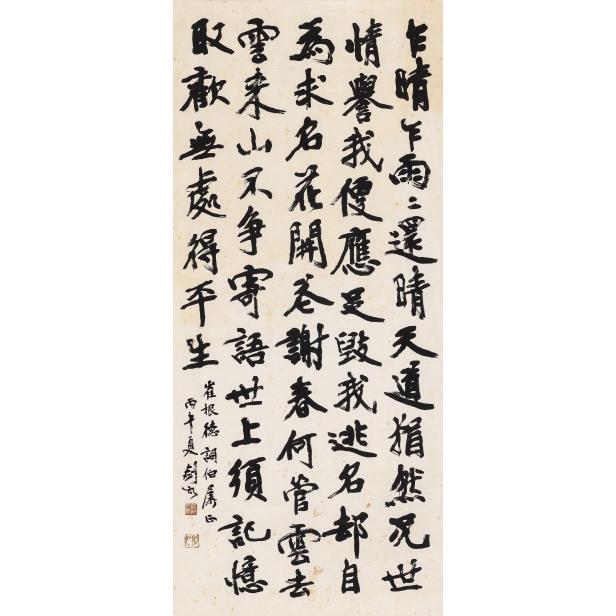 乍晴乍雨〻還晴天道猶然况世
情譽我便應是毀我逃名却自
為求名花開花謝春何管雲去
雲來山不爭寄語世上須記憶
取歡無處得平生
崔根德詞伯屬正
丙午夏